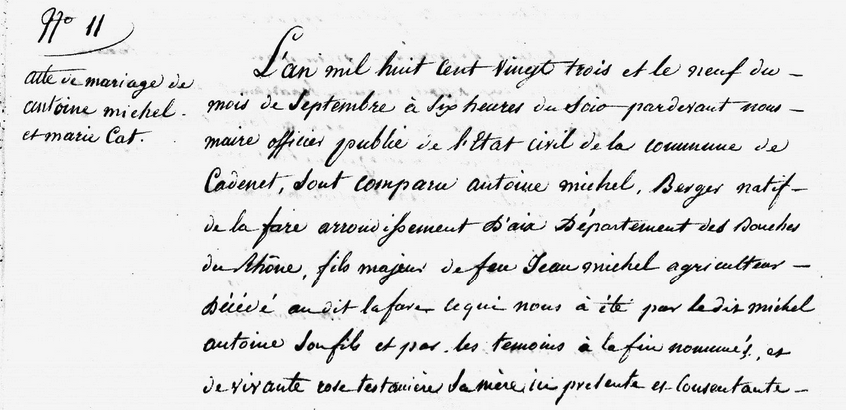 N° 11
acte de mariage de
antoine michel.
et marie Cat.
L'an mil huit Cent vingt trois et le neuf du
mois de Septembre à Six heures du Soir pardevant nous
maire officier public de l'Etat civil de la commune de
Cadenet, Sont comparu antoine michel, Berger natif
de la fare arrondissement D'aix Département des Bouches
du Rhône, fils majeur de feu Jean michel agriculteur
Décédé au dit lafare ce qui nous à été par ledit michel
antoine Son fils et par les temoins à la fin nommés, et
de vivante rose testanière Sa mère, ici presente et Consentante